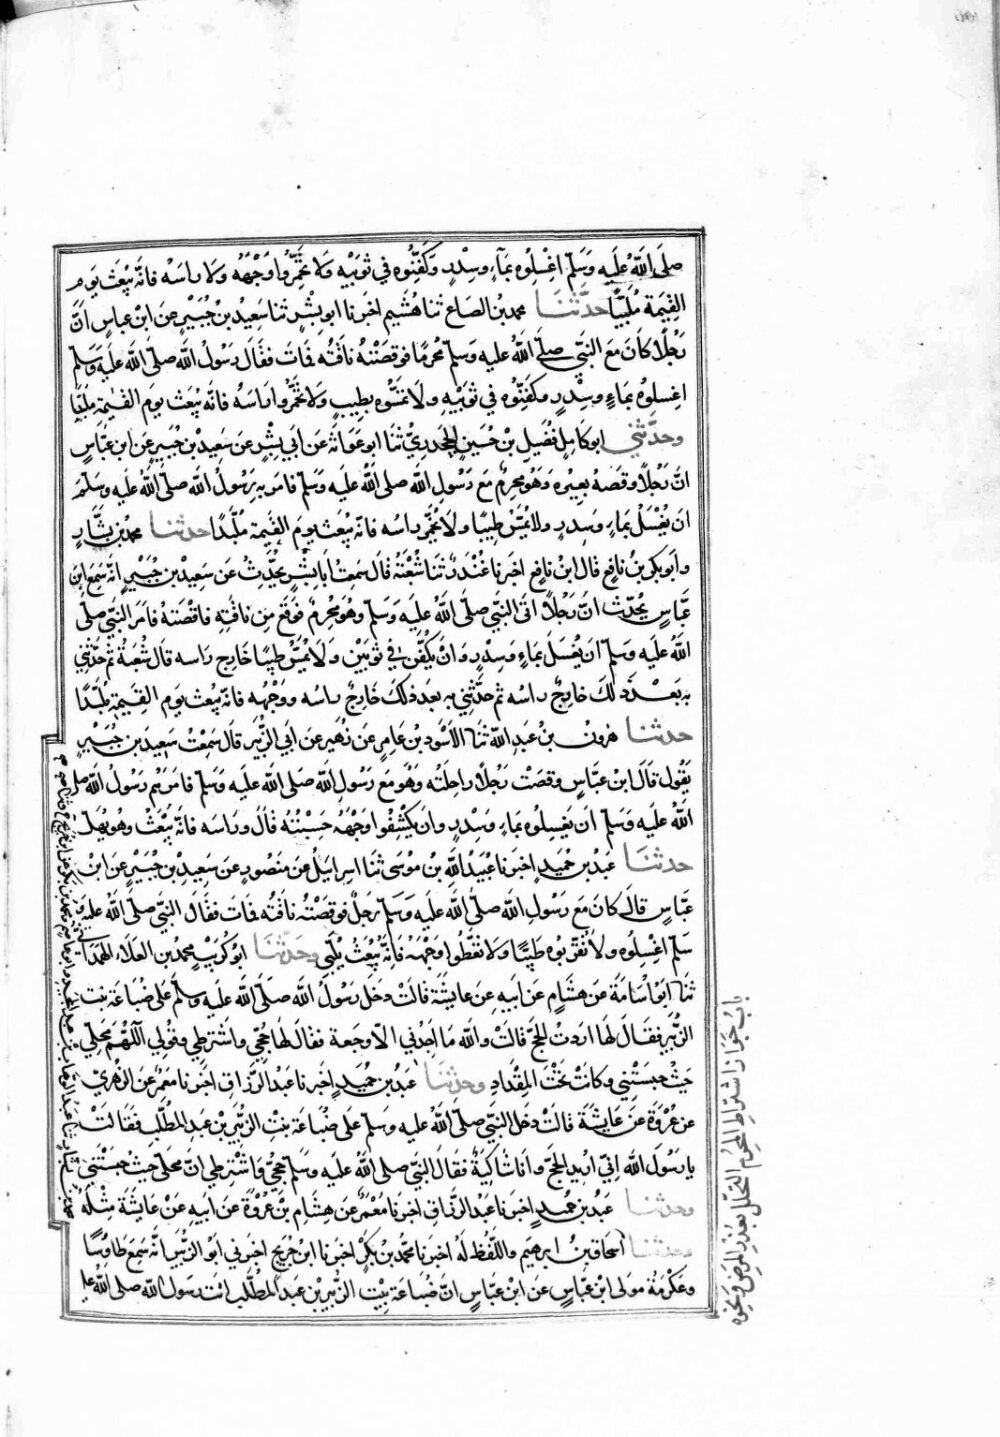 صلى الله عليه وسلم اغسلوه بماء وسدر وكفنوه في ثوبيه ولا تخمروا وجهه ولا راسه فانه يبعث يوم
القيمة ملبيا حدثنا محمد بن الصباع ثنا هشيم اخبرنا ابو بشر ثنا سعيد بن جبير عن ابن عباس ان
رجلا كان مع النبي صلى الله عليه وسلم محرما فوقصته ناقته فمات فقال رسول الله صلى الله عليه وسلم
اغسلوه بماء وسدر وكفنوه في ثوبيه ولا تمسوه بطيب ولا تخمروا راسه فانه يبعث يوم القيمة ملبيا
وحدثني ابو كامل فضيل بن حسين الجحدري ثنا ابو عوانة عن ابي بشر عن سعيد بن جبير عن ابن عباس
ان رجلا وقصه بعيره وهو محرم مع رسول الله صلى الله عليه وسلم فامر به رسول الله صلى الله عليه وسلم
ان يغسل بماء وسدر ولا يمس طيبا ولا يخمر راسه فانه يبعث يوم القيمة ملبدا حدثنا محمد بن بشار
وابو بكر بن نافع قال ابن نافع اخبرنا غندر ثنا شعبة قال سمعت ابا بشر يحدث عن سعيد بن جبير انه سمع ابن
عباس يحدث ان رجلا اتى النبي صلى الله عليه وسلم وهو محرم فوقع من ناقته فاقعصته فامر النبي صلى
الله عليه وسلم ان يغسل بماء وسدر وان يكفن في ثوبين ولا يمس طيبا خارج راسه قال شعبة ثم حدثني
به بعد ذلك خارج راسه ثم حدثني به بعد ذلك خارج راسه ووجهه فانه يبعث يوم القيمة ملبدا
حدثنا هرون بن عبد الله ثنا الاسود بن عامر عن زهير عن ابي الزبير قال سمعت سعيد بن جبير
يقول قال ابن عباس وقصت رجلا راحلته وهو مع رسول الله صلى الله عليه وسلم فامرهم رسول الله صلى
الله عليه وسلم ان يغسلوه بماء وسدر وان يكشفوا وجهه حسبته قال وراسه فانه يبعث وهو يهل
حدثنا عبد بن حميد اخبرنا عبيد الله بن موسى ثنا اسرائيل عن منصور عن سعيد بن جبير عن ابن
عباس قال كان مع رسول الله صلى الله عليه وسلم رجل فوقصته ناقته فمات فقال النبي صلى الله عليه و
سلم اغسلوه ولا تقربوه طيبا ولا تغطوا وجهه فانه يبعث يلبي وحدثنا ابو كريب محمد بن العلاء الهمداني
ثنا ابو اسامة عن هشام عن ابيه عن عايشة قالت دخل رسول الله صلى الله عليه وسلم على ضباعة بنت
الزبير فقال لها اردت الحج قالت والله ما اجدني الا وجعة فقال لها حجي واشترطي وقولي اللهم محلي
حيث حبستني وكانت تحت المقداد وحدثنا عبد بن حميد اخبرنا عبد الرزاق اخبرنا معمر عن الزهري
عن عروة عن عايشة قالت دخل النبي صلى الله عليه وسلم على ضباعة بنت الزبير بن عبد المطلب فقالت
يا رسول الله اني اريد الحج وانا شاكية فقال النبي صلى الله عليه وسلم حجي واشترطي ان محلي حيث حبستني
وحدثنا عبد بن حميد اخبرنا عبد الرزاق اخبرنا معمر عن هشام بن عروة عن ابيه عن عايشة مثله
وحدثنا اسحاق بن ابرهيم واللفظ له اخبرنا محمد بن بكر اخبرنا ابن جريج اخبرني ابو الزبير انه سمع طاوسا
وعكرمة مولى ابن عباس عن ابن عباس ان ضباعة بنت الزبير بن عبد المطلب اتت رسول الله صلى الله علي
باب جواز اشتراط المحرم التحلل بعذر المرض ونحوه